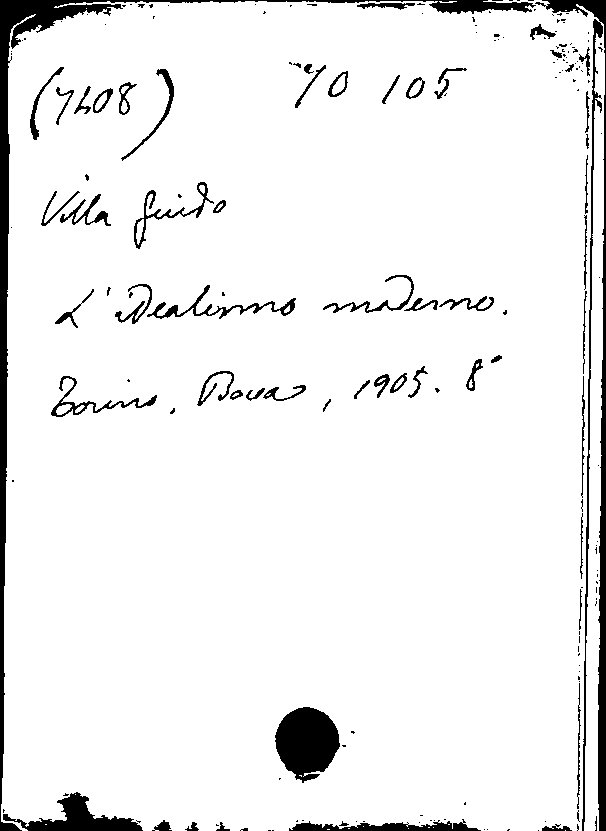 (7408) 70 105
Villa Guido
L'idealismo moderno.
Torino, Bocca, 1905. 8°